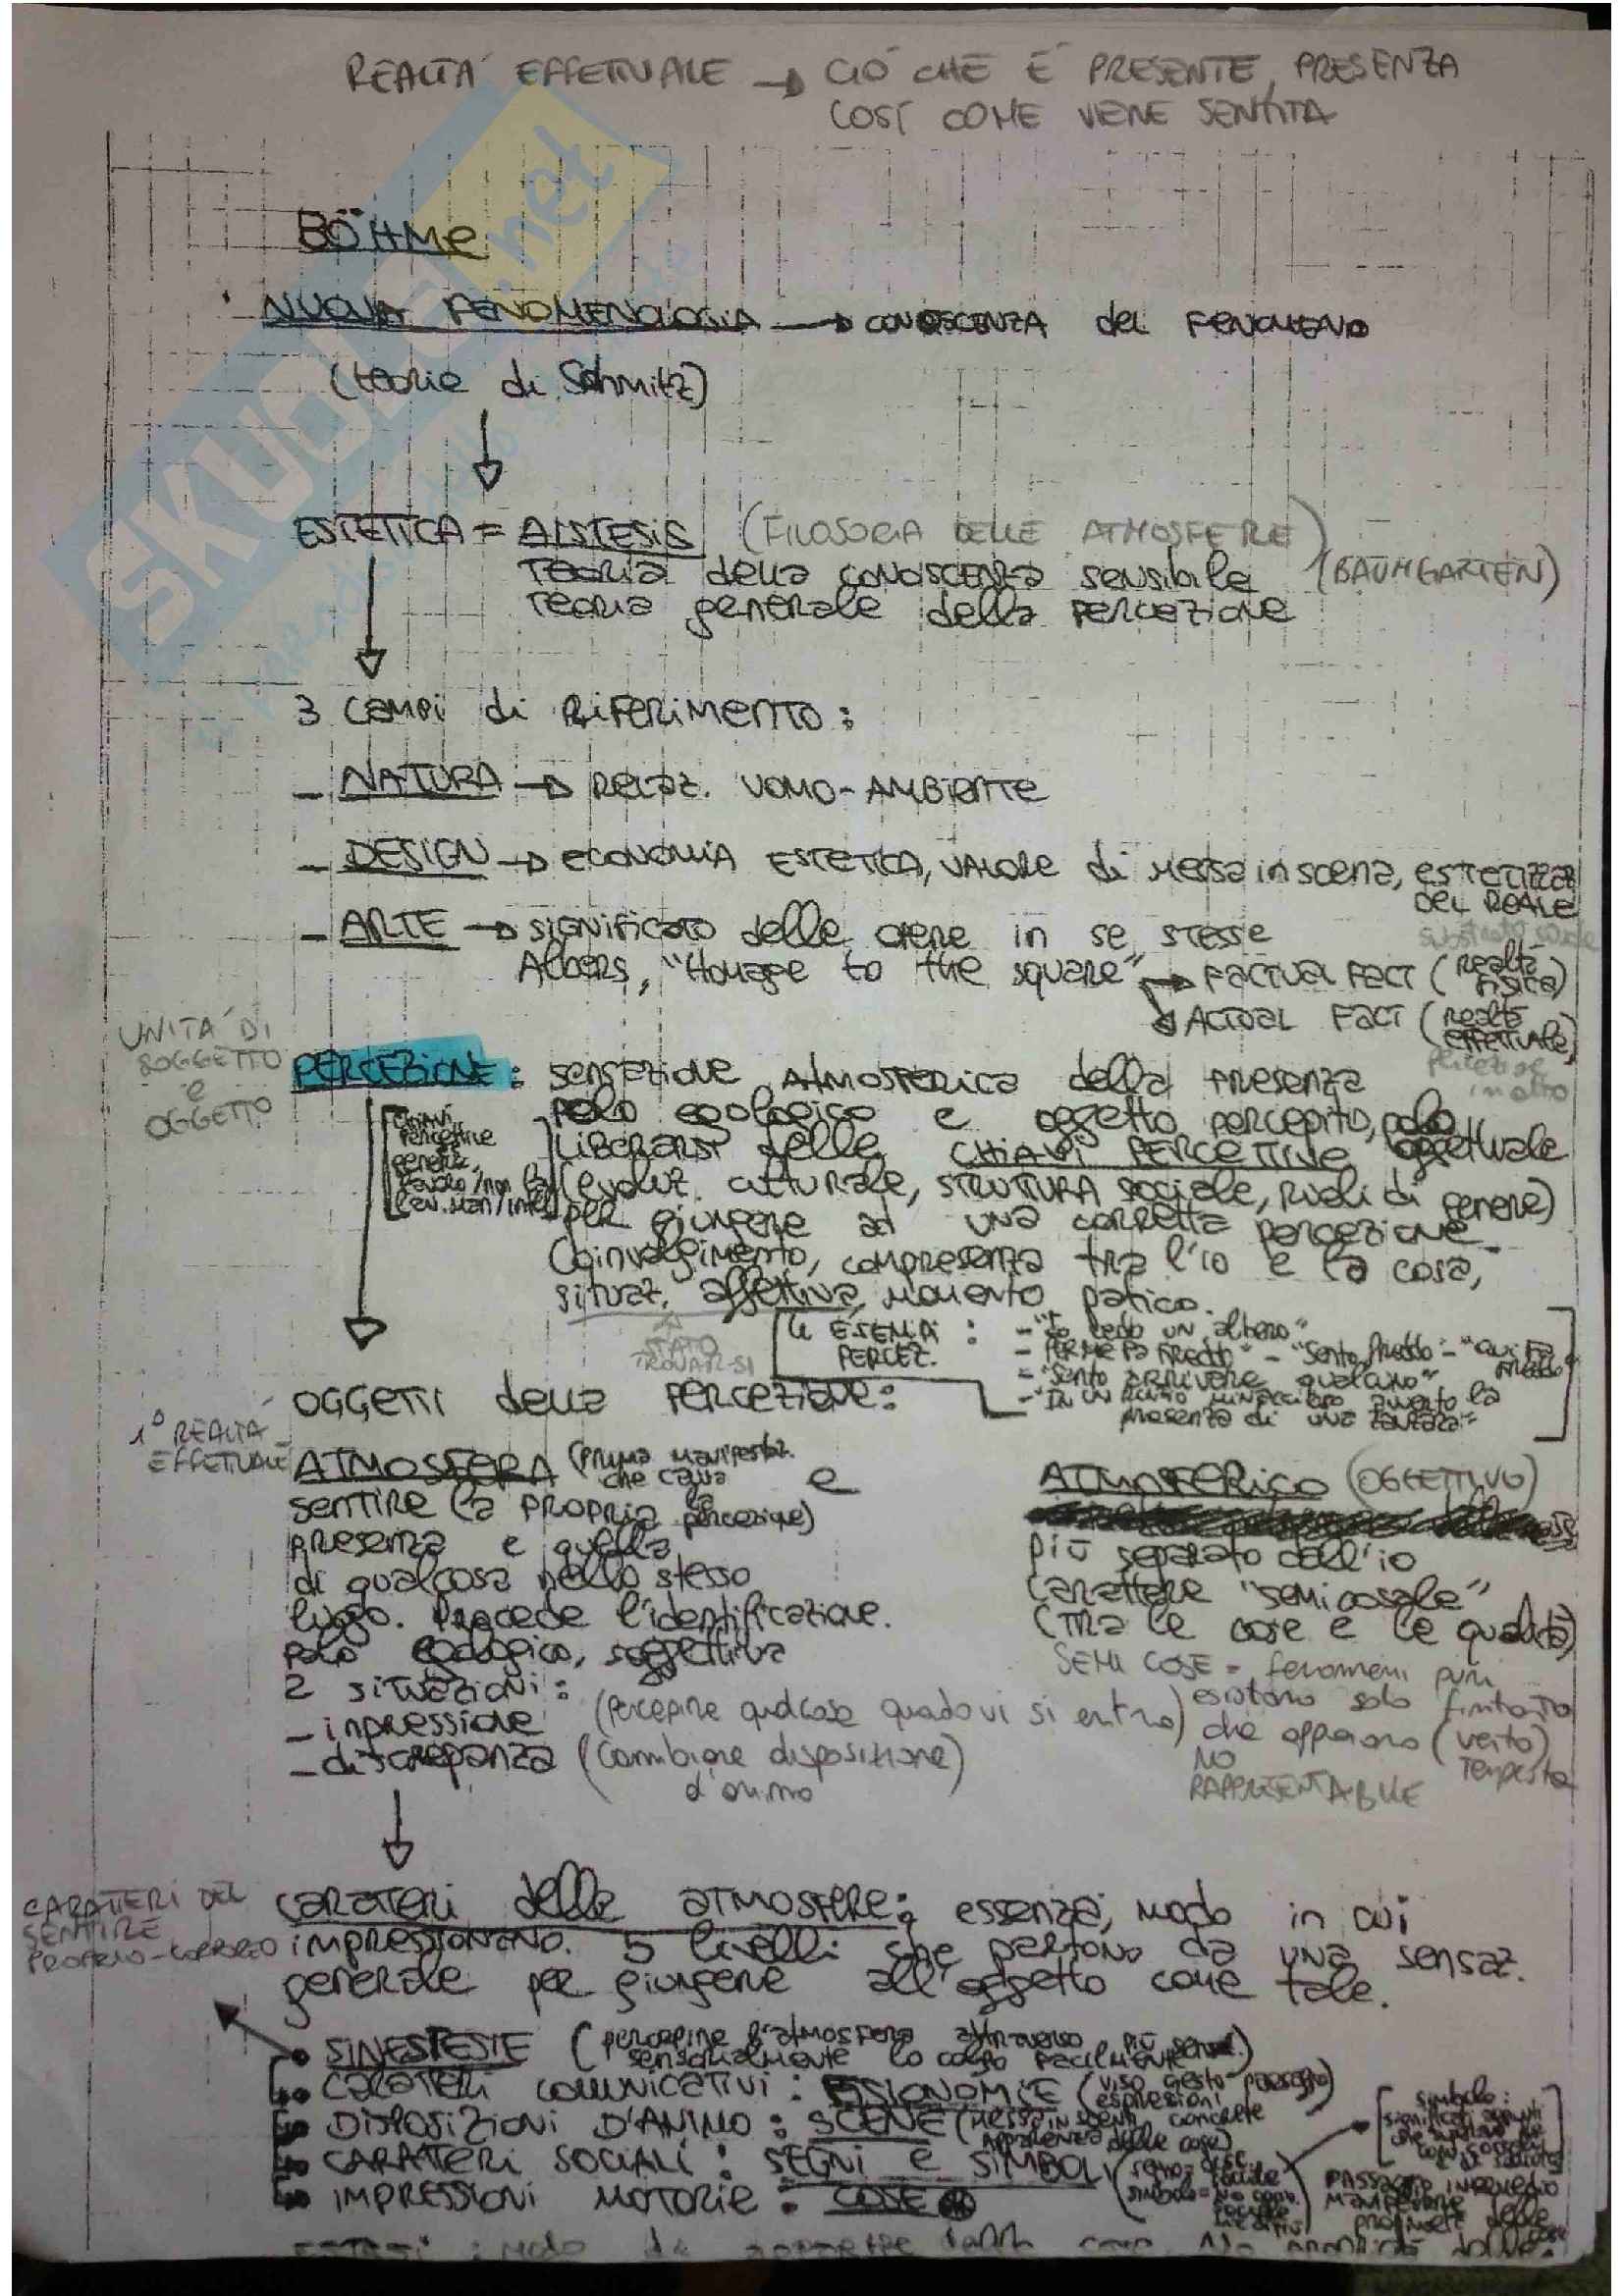 REALTÁ EFFETTUALE → CIÒ CHE È PRESENTE, PRESENZA
COSÍ COME VIENE SENTITA
BÖHMe
NUOVA FENOMENOLOGIA → CONOSCENZA del FENOMENO
(teorie di Schmitz)
ESTETICA = AISTESIS (FILOSOFIA DELLE ATMOSFERE)
Teoria della conoscenza sensibile (BAUMGARTEN)
Teoria generale della percezione
3 campi di riferimento:
- NATURA → RELAZ. UOMO-AMBIENTE
- DESIGN → ECONOMIA ESTETICA, VALORE di messa in scena, estetizzaz
DEL REALE
- ARTE → SIGNIFICATO delle opere in se stesse
Albers, "Homage to the square" → FACTUAL FACT (realtà fisica)
ACTUAL FACT (realtà effettuale)
UNITÀ DI
SOGGETTO
e
OGGETTO
PERCEZIONE: sensazione atmosferica della presenza
polo egologico e oggetto percepito, polo oggettuale
LIBERARSI delle CHIAVI PERCETTIVE
(evoluz. culturale, STRUTTURA sociale, ruoli di genere)
per giungere ad una corretta percezione
Coinvolgimento, compresenza tra l'io e la cosa,
situaz. affettiva, momento patico.
STATO
TROVAR-SI
4 ESEMPI PERCEZ. : - "Io vedo un albero"
- "PER ME FA FREDDO" - "Sento freddo" - "Qui fa freddo"
- "Sento arrivare qualcuno"
presenza di una zanzara"
OGGETTI della PERCEZIONE:
1° REALTÀ
EFFETTUALE
ATMOSFERA (prima manifestaz. che causa la percezione) e ATMOSFERICO (OGGETTIVO)
sentire la propria
presenza e quella
di qualcosa nello stesso
luogo. Precede l'identificazione.
polo egologico, soggettiva
più separato dall'io
carattere "semicosale"
(tra le cose e le qualità)
SEMI COSE = fenomeni puri
esistono solo fintanto
che appaiono (vento)
tempesta
NO
RAPPRESENTABILE
2 situazioni:
- impressione (percepire qualcosa quado vi si entra)
- discrepanza (cambiare disposizione
d'animo
CARATTERI DEL
SENTIRE
PROPRIO-CORPOREO
CARATTERI delle ATMOSFERE: essenza, modo in cui
impressionano. 5 livelli che partono da una sensaz.
generale per giungere all'oggetto come tale.
SINESTESIE (percepire l'atmosfera attraverso più sensi.)
CARATTERI comunicativi: FISIONOMIE (viso gesto paesaggio espressioni
DISPOSIZIONI D'ANIMO: SCENE
CARATTERI SOCIALI: SEGNI e SIMBOLI
IMPRESSIONI MOTORIE: COSE
simbolo: